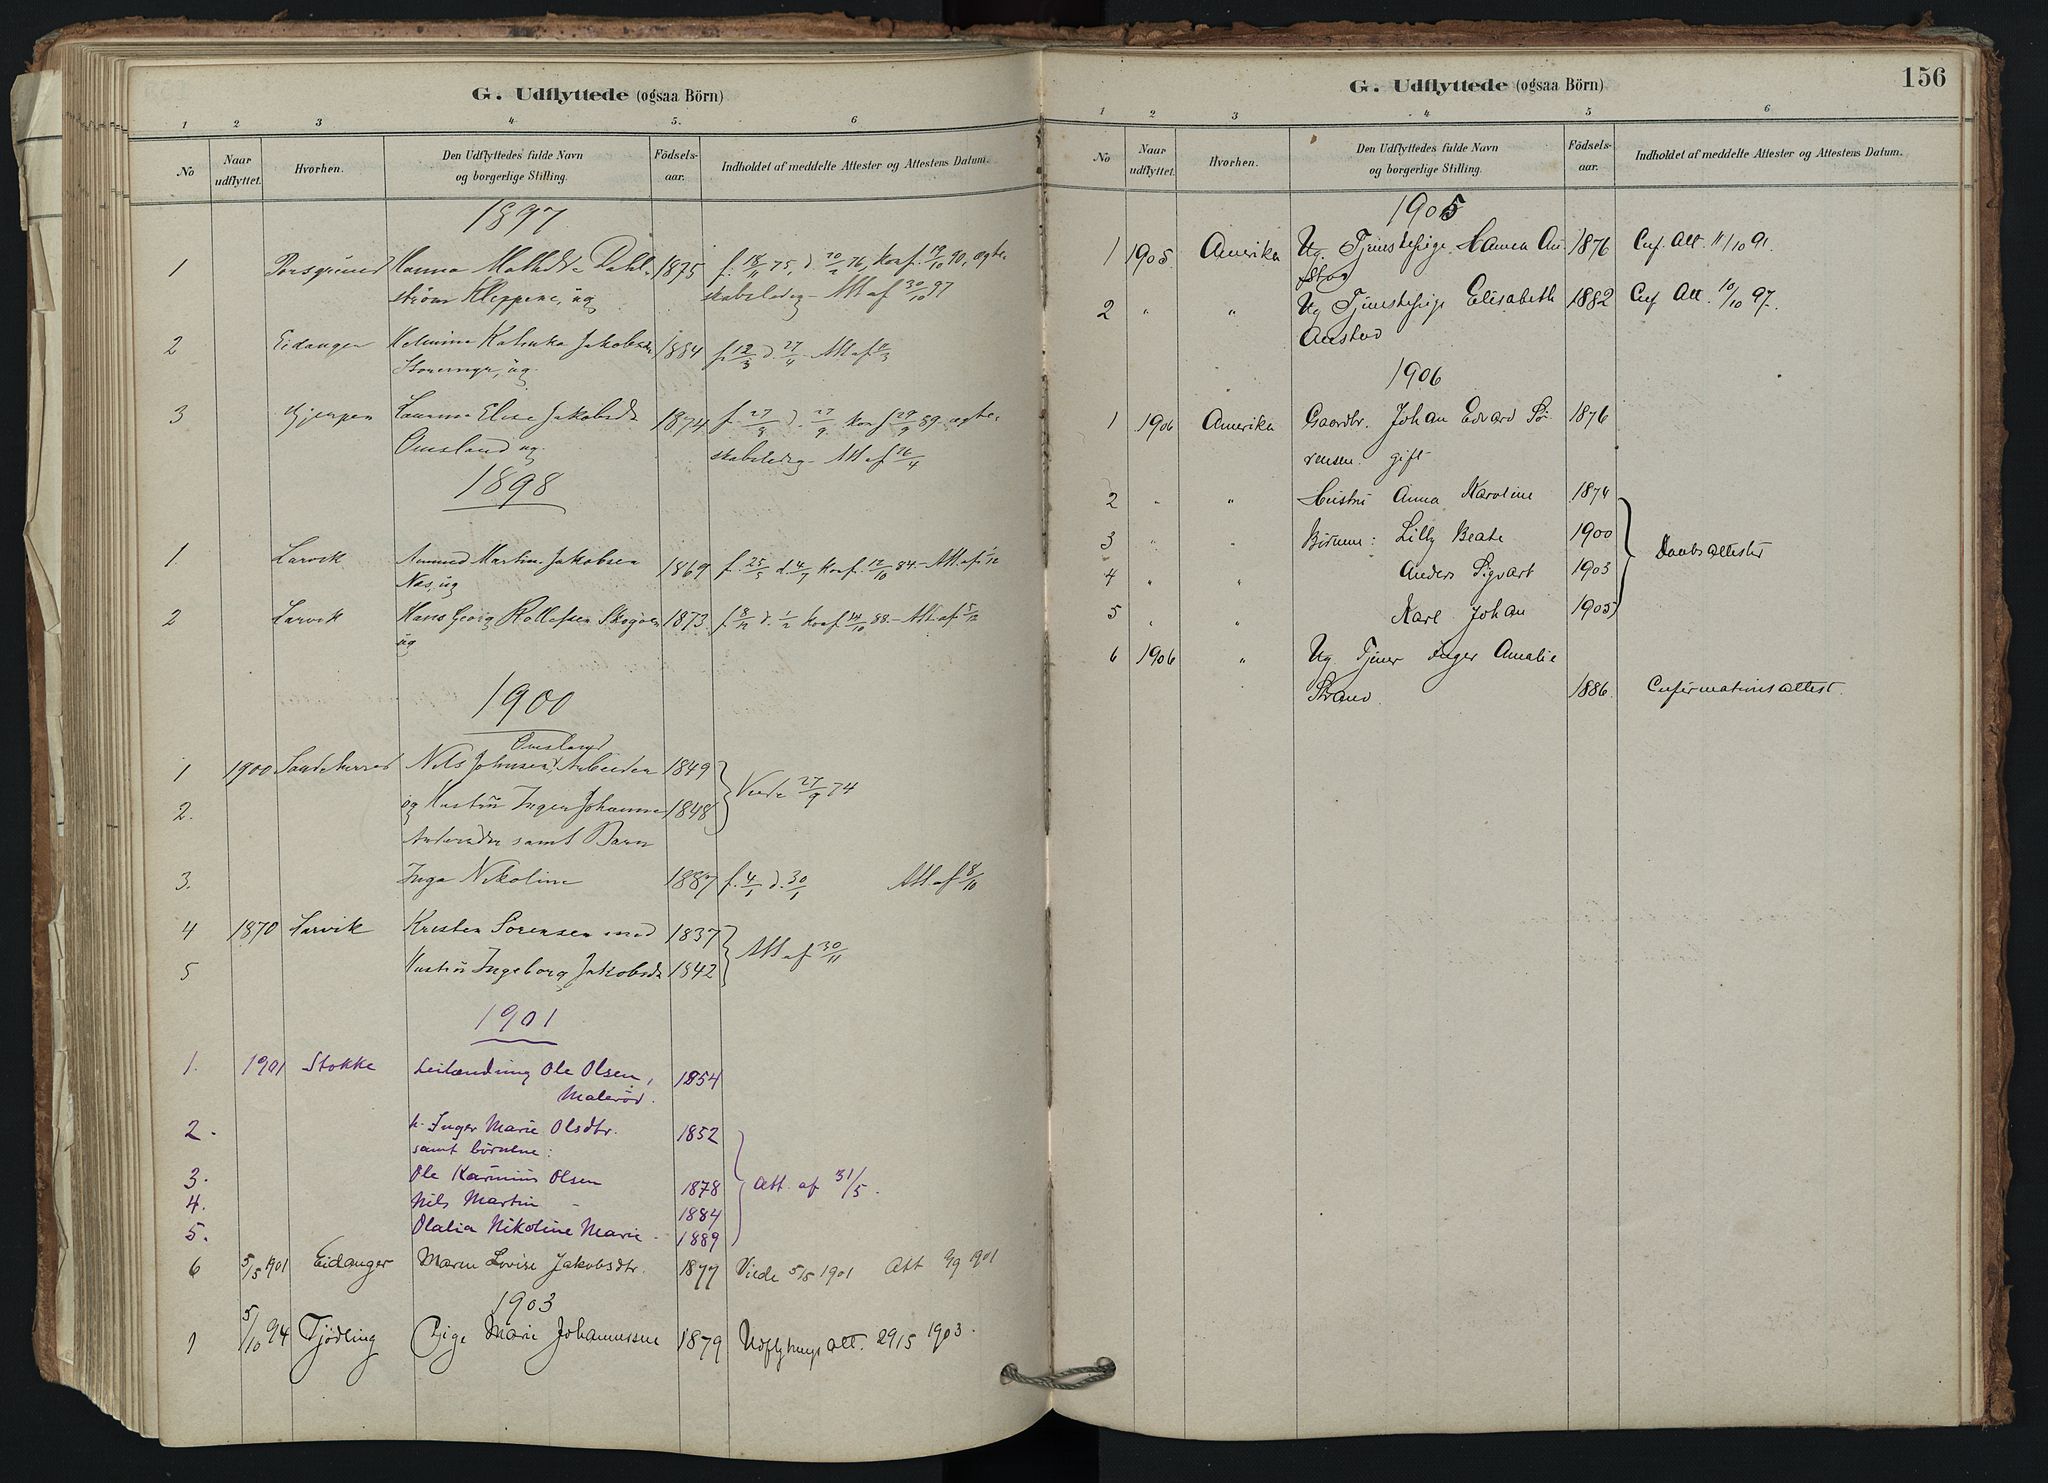 G. Udflyttede (ogsaa Börn)
1 2 3 4 5. 6
No Naar udflyttet. Hvorhen. Den Udflyttedes fulde Navn og borgerlige Stilling. Födsels-aar. Indholdet af meddelte Attester og Attestens Datum.
1897
1 Porsgrund Hanna Mathilde Dahl- 1875 f. 18/11 75, d. 20/2 76, konf. 19/10 90, ægte-
strøm Kleppene, ug skabsledig - Att af 30/10 97
2 Eidanger Helmine Katinka Jakobsdr 1884 f. 12/3 d. 27/4 - Att af
ug.
3 Gjerpen Elise Jakobsdr 1874 f. 27/8 d. 27/9 konf 29/9 89. ægte-
Omsland ug. skabsledig - Att af 16/4
1898
1 Larvik Martin Jakobsen 1869 f. 25/5 d. 4/7 Konf. 12/10 84 - Att. af
Næs, ug
2 Larvik Hans Georg Rollefsen Skogen 1873 f. 8/12 d. 1/2 Konf. 14/10 88 - Att. af 5/12
ug
1900
Omsland
1 1900 Sandeherred Nils Johnsen, Arbeider 1849 Viede 27/9 74
2. og Hustru Inger Johanne 1848
Andersdr samt Barn
3. Inga Nikoline 1887 f. 4/1 d. 30/1 Att af 8/10
4 1870 Larvik Kristen Sørensen med 1837 Att af 30/11
5 Hustru Ingeborg Jakobsdr 1842
1901
1. 1901 Stokke Leilænding Ole Olsen, 1854
Malerød.
2. h. Inger Marie Olsdtr. 1852
samt børnene:
3. Ole Karinius Olsen 1878 Att. af 31/5.
4. Nils Martin - 1884
5. Olalia Nikoline Marie - 1889
6 5/5 1901 Eidanger Maren Lovise Jakobsdtr. 1877 Viede 5/5 1901 Att 9/9 1901
1903
1 5/10 94 Tjödling Pige Marie Johannessen 1879 Udflytnings att. 29/5 1903.
156
G. Udflyttede (ogsaa Börn)
1 2 3 4 5 6
No Naar udflyttet. Hvorhen. Den Udflyttedes fulde Navn og borgerlige Stilling. Födsels-aar. Indholdet af meddelte Attester og Attestens Datum.
1905
1 1905. Amerika Ug. Tjenestepige Hanna An- 1876 Cnf. Att. 11/10 91.
stad
2 " " Ug Tjenestepige Elisabeth 1882 Cnf Att. 10/10 97.
Anstad
1906
1 1906 Amerika Gaardbr. Johan Edvard Sø- 1876
rensen. gift
2 " " Hustru Anna Karoline 1874
3 " " Børnene: Lilly Beate 1900 Daabsattester
4 " " Anders Sigvart 1903
5 " " Karl Johan 1905
6 1906 " Ug. Tjener Inger Amalie
Strand 1886. Cnfirmationsattest.